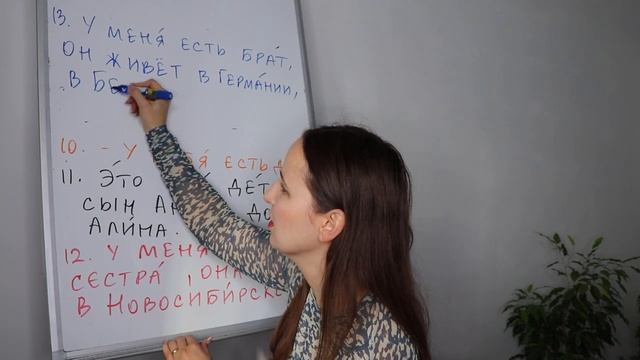 13. У МЕНЯ́ ЕСТЬ БРАТ,
ОН ЖИВЁТ В ГЕРМА́НИИ,
В БЕ
10. - У ЕСТЬ
11. Э́ТО
СЫН
АЛИ́НА.
12. У МЕНЯ
СЕСТРА́, ОНА
В НОВОСИБИ́РСКЕ